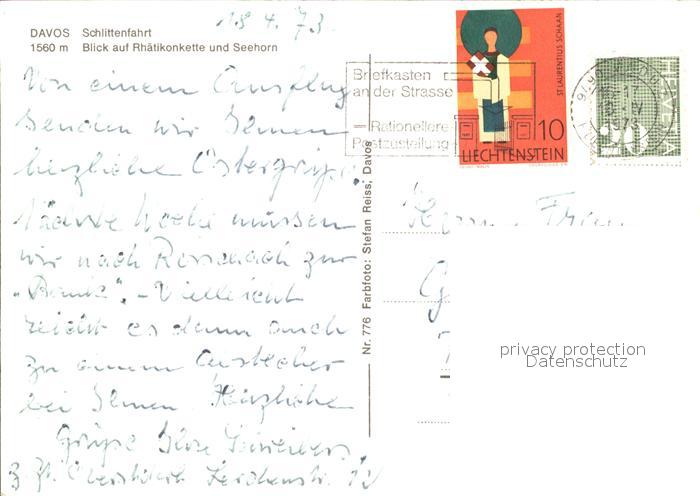 18.4.73.
DAVOS Schlittenfahrt
1560 m Blick auf Rhätikonkette und Seehorn
Von einem Ausflug
senden wir Ihnen
herzliche Ostergrüße.
Nächste Woche müssen
wir nach Rorschach zur
"Bank". - Vielleicht
reicht es dann auch
zu einem Abstecher
bei Ihnen. Herzliche
Grüße Ihre
z. Zt. Lerchenstr. 12
Nr. 776 Farbfoto: Stefan Reiss, Davos
Briefkasten
an der Strasse
= Rationellere
Postzustellung
ST. LAURENTIUS SCHAAN
10
LIECHTENSTEIN
HELVETIA
20
Frau
privacy protection
Datenschutz